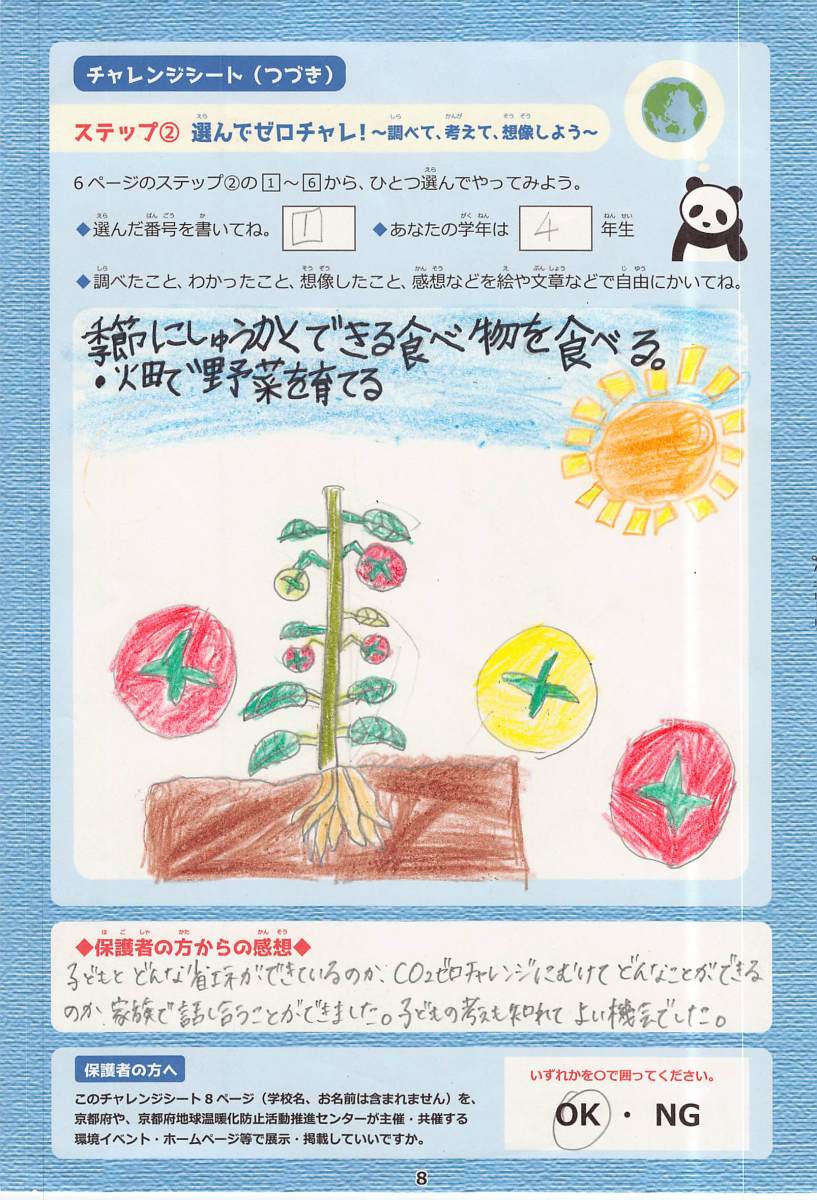 チャレンジシート（つづき）
ステップ② 選んでゼロチャレ！～調べて、考えて、想像しよう～
6ページのステップ②の1～6から、ひとつ選んでやってみよう。
◆選んだ番号を書いてね。 1 ◆あなたの学年は 4 年生
◆調べたこと、わかったこと、想像したこと、感想などを絵や文章などで自由にかいてね。
季節にしゅうかくできる食べ物を食べる。
・火田で野菜を育てる
◆保護者の方からの感想◆
子どもと どんな省エネができているのか、CO2ゼロチャレンジにむけて どんなことができる
のか、家族で話し合うことができました。子どもの考えも知れて よい機会でした。
保護者の方へ
このチャレンジシート8ページ（学校名、お名前は含まれません）を、
京都府や、京都府地球温暖化防止活動推進センターが主催・共催する
環境イベント・ホームページ等で展示・掲載していいですか。
いずれかを○で囲ってください。
OK ・ NG
8